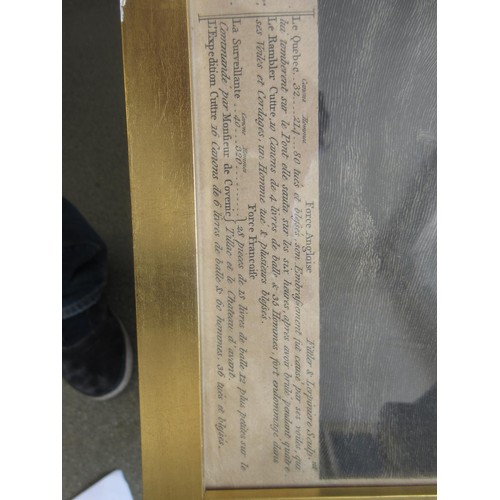 Fittler & Lerpiniere Sculp. et
Force Angloise
Canons Hommes
Le Quebec. 32... 214... 80 tués et blessés son Embrasement fut causé par ses voiles, que
lui tomberent sur le Pont elle sauta sur les six heures, après avoir brulé pendant quatre
Le Rambler Cuttre, 10 Canons de 4 livres de balle & 35 Hommes, fort endommagé dans
ses Voiles et Cordages, un Homme tué & plusieurs blessés.
Force Francoise
Canons Hommes
La Surveillante ... 40... 320 ........ 28 pieces de 18 livres de balle 12 plus petites sur le
Commandé par Monsieur de Covenic Tillac et le Chateau d'avant.
L'Expedition Cuttre 10 Canons de 6 livres de balle & 60 hommes. 36 tués et blessés.